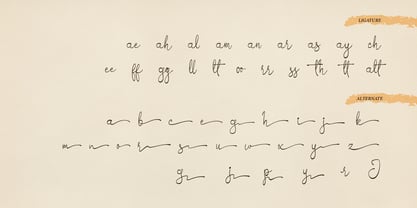 LIGATURE
ae ah al am an ar as ay ch
ee ff gg ll tt oo rr ss th tt att
ALTERNATE
a b c e g h i j k
m n o r s u w x y z
g j p y r